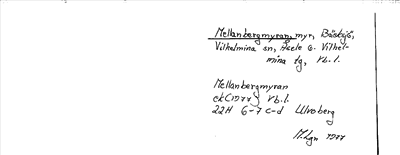 Mellanbergmyran, myr, Bäsksjö,
Vilhelmina sn, Åsele o. Vilhel-
mina tg, Vb. l.
Mellanbergmyran
ek (1977) Vb. l.
22H 6-7 c-d Ulvoberg
M.Lgn 1977